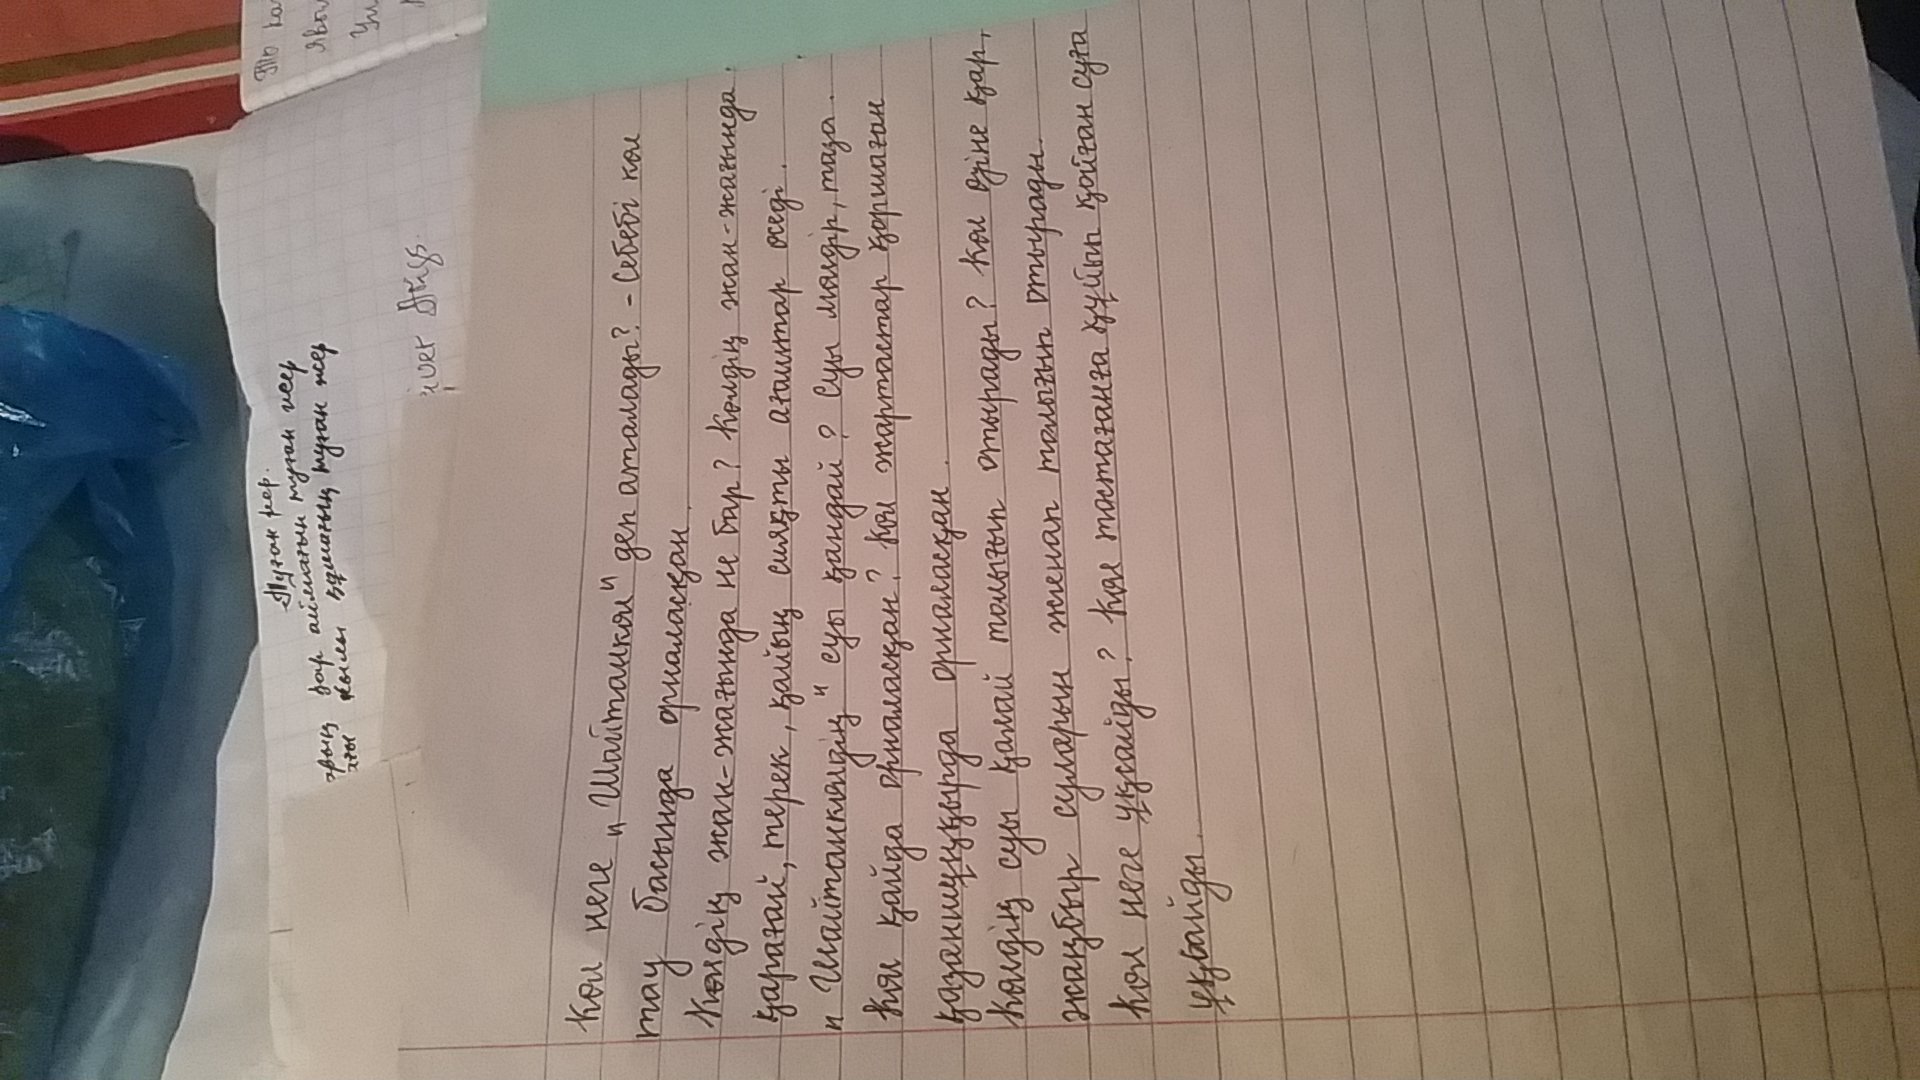 Туған жер.
бар аймағын туған жер
жылы құшағың туған жер
iver
Көл неге "Шайтанкөл" деп аталады? - Себебі көл
тау басында орналасқан.
Көлдің жан-жағында не бар? Көлдің жан-жағында
қарағай, терек, қайың сияқты ағаштар өседі.
"Шайтанкөлдің" суы қандай? Суы мөлдір, таза.
Көл қайда орналасқан? Көл жартастар қоршаған
қазаншұңқырда орналасқан.
Көлдің суы қалай толығып отырады? Көл өзіне қар,
жаңбыр суларын жинап толығып отырады.
Көл неге ұқсайды? Көл тостағанға құйып қойған суға
ұқсайды.